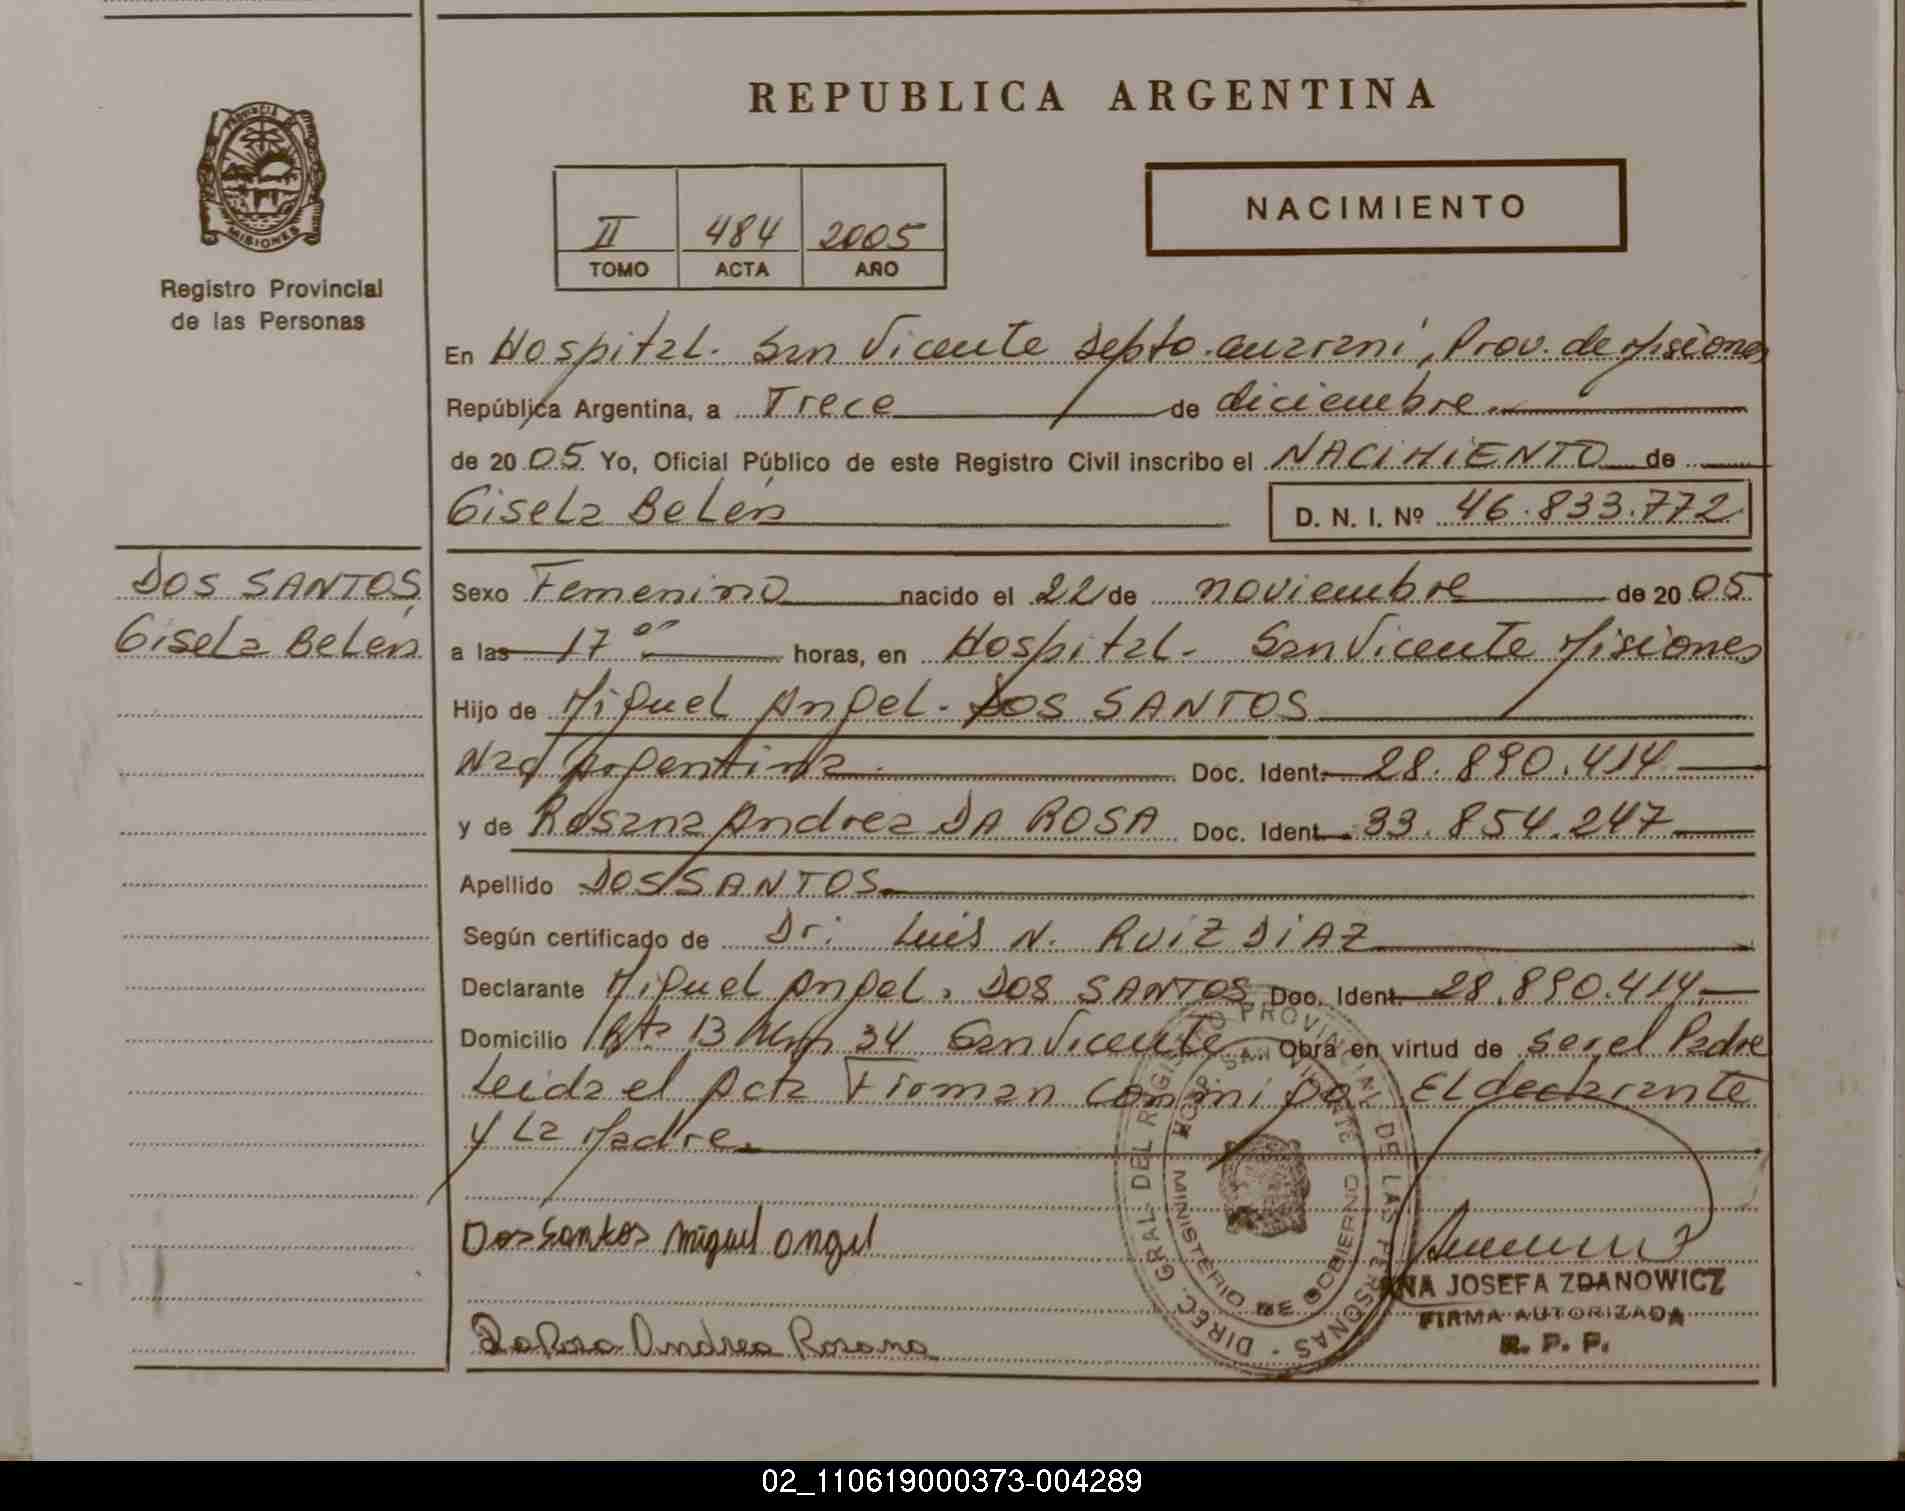 REPUBLICA ARGENTINA
PROVINCIA DE
MISIONES
Registro Provincial
de las Personas
II 484 2005
TOMO ACTA AÑO
NACIMIENTO
En Hospital. San Vicente Depto. Guaraní, Prov. de Misiones
República Argentina, a Trece de diciembre.
de 2005 Yo, Oficial Público de este Registro Civil inscribo el NACIMIENTO de
Gisela Belén D. N. I. Nº 46.833.772
DOS SANTOS,
Gisela Belén
Sexo Femenino nacido el 22 de noviembre de 2005
a las 17 oo horas, en Hospital. San Vicente Misiones
Hijo de Miguel Angel. DOS SANTOS
Nac Argentina. Doc. Ident. 28.890.414
y de Rosana Andrea DA ROSA Doc. Ident. 33.854.247
Apellido DOS SANTOS
Según certificado de Dr: Luis N. RUIZ DIAZ
Declarante Miguel Angel. DOS SANTOS Doc. Ident. 28.890.414
Domicilio Rta 13 Km 34 San Vicente Obra en virtud de ser el Padre
Leida el Acta Firman conmigo El declarante
y La Madre.
Dos Santos Miguel Angel
Da Rosa Andrea Rosana
DIREC. GRAL. DEL REGISTRO PROVINCIAL DE LAS PERSONAS
HOSP. SAN VICENTE
MINISTERIO DE GOBIERNO
ANA JOSEFA ZDANOWICZ
FIRMA AUTORIZADA
R. P. P.
02_110619000373-004289